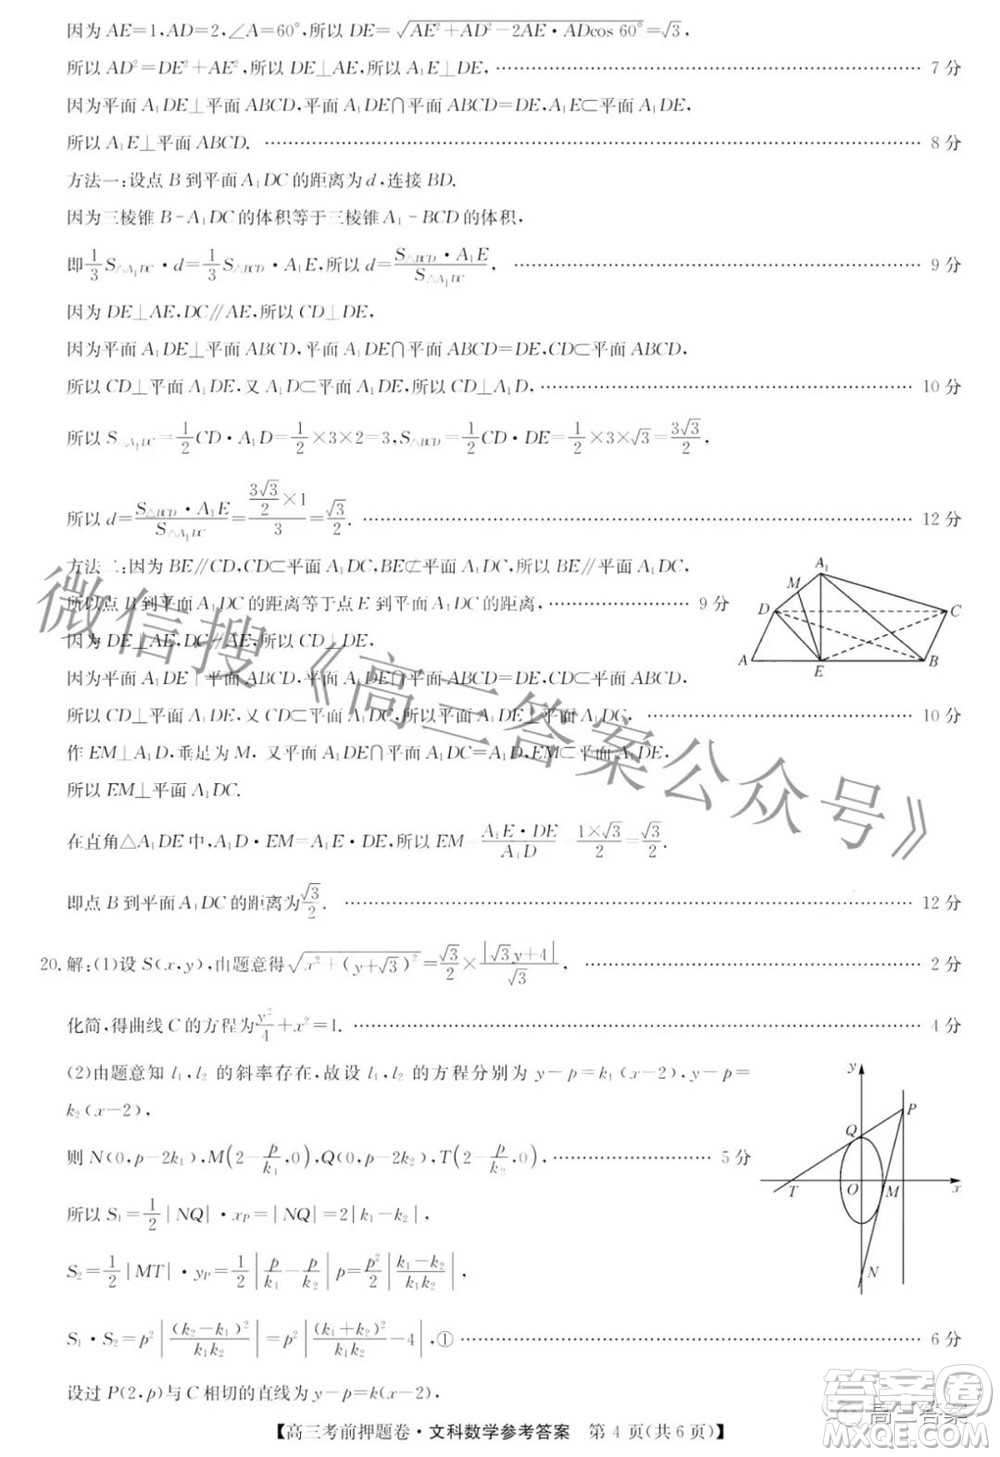 因为 AE=1,AD=2,∠A=60°,所以 DE=√(AE²+AD²-2AE·ADcos 60°)=√3,
所以 AD²=DE²+AE²,所以 DE⊥AE,所以 A₁E⊥DE, …… 7 分
因为平面 A₁DE⊥平面 ABCD,平面 A₁DE∩平面 ABCD=DE,A₁E⊂平面 A₁DE,
所以 A₁E⊥平面 ABCD. …… 8 分
方法一:设点 B 到平面 A₁DC 的距离为 d,连接 BD.
因为三棱锥 B-A₁DC 的体积等于三棱锥 A₁-BCD 的体积,
即 1/3 S△A₁DC·d=1/3 S△BCD·A₁E,所以 d=(S△BCD·A₁E)/S△A₁DC. …… 9 分
因为 DE⊥AE,DC∥AE,所以 CD⊥DE,
因为平面 A₁DE⊥平面 ABCD,平面 A₁DE∩平面 ABCD=DE,CD⊂平面 ABCD,
所以 CD⊥平面 A₁DE,又 A₁D⊂平面 A₁DE,所以 CD⊥A₁D, …… 10 分
所以 S△A₁DC=1/2 CD·A₁D=1/2×3×2=3,S△BCD=1/2 CD·DE=1/2×3×√3=3√3/2,
所以 d=(S△BCD·A₁E)/S△A₁DC=(3√3/2×1)/3=√3/2. …… 12 分
方法二:因为 BE∥CD,CD⊂平面 A₁DC,BE⊄平面 A₁DC,所以 BE∥平面 A₁DC,
所以点 B 到平面 A₁DC 的距离等于点 E 到平面 A₁DC 的距离, …… 9 分
因为 DE⊥AE,DC∥AE,所以 CD⊥DE.
因为平面 A₁DE⊥平面 ABCD,平面 A₁DE∩平面 ABCD=DE,CD⊂平面 ABCD,
所以 CD⊥平面 A₁DE,又 CD⊂平面 A₁DC,所以平面 A₁DC⊥平面 A₁DE. …… 10 分
作 EM⊥A₁D,垂足为 M, 又平面 A₁DE∩平面 A₁DC=A₁D,EM⊂平面 A₁DE,
所以 EM⊥平面 A₁DC.
在直角△A₁DE 中,A₁D·EM=A₁E·DE,所以 EM=(A₁E·DE)/A₁D=(1×√3)/2=√3/2,
即点 B 到平面 A₁DC 的距离为 √3/2. …… 12 分
A₁
M
D
C
A
E
B
20.解:(1)设 S(x,y),由题意得 √(x²+(y+√3)²)=√3/2×|√3y+4|/√3, …… 2 分
化简,得曲线 C 的方程为 y²/4+x²=1. …… 4 分
(2)由题意知 l₁,l₂ 的斜率存在,故设 l₁,l₂ 的方程分别为 y-p=k₁(x-2),y-p=
k₂(x-2),
则 N(0,p-2k₁),M(2-p/k₁,0),Q(0,p-2k₂),T(2-p/k₂,0), …… 5 分
所以 S₁=1/2|NQ|·x_P=|NQ|=2|k₁-k₂|,
S₂=1/2|MT|·y_P=1/2|p/k₁-p/k₂|p=p²/2|(k₁-k₂)/(k₁k₂)|,
S₁·S₂=p²|(k₂-k₁)²/(k₁k₂)|=p²|(k₁+k₂)²/(k₁k₂)-4|,① …… 6 分
设过 P(2,p)与 C 相切的直线为 y-p=k(x-2),
y
P
Q
T
O
M
x
N
【高三考前押题卷·文科数学参考答案 第 4 页(共 6 页)】
微信搜《高三答案公众号》
答案卷
高三答案
MXQE.COM